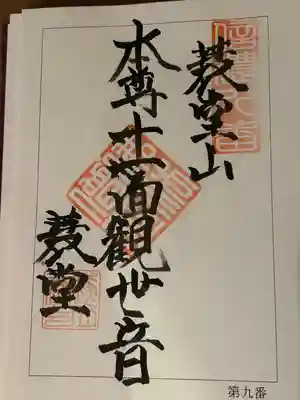 蓑堂山
本尊十一面觀世音
蓑堂
第九番